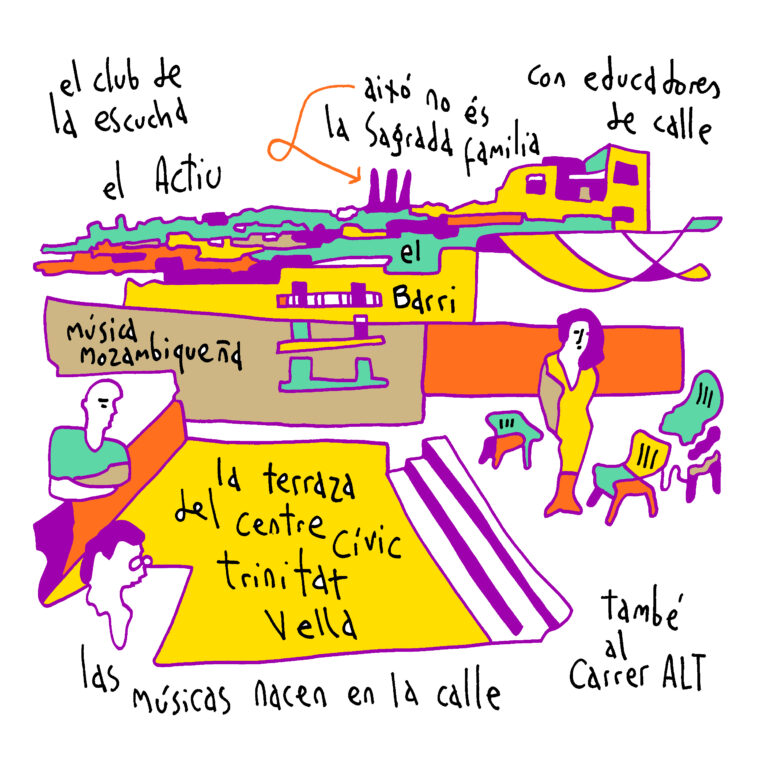 el club de
la escucha
el Actiu
això no és
la Sagrada familia
con educadores
de calle
el
Barri
música
mozambiqueña
la terraza
del centre Cívic
trinitat
Vella
també
al
Carrer ALT
las músicas nacen en la calle